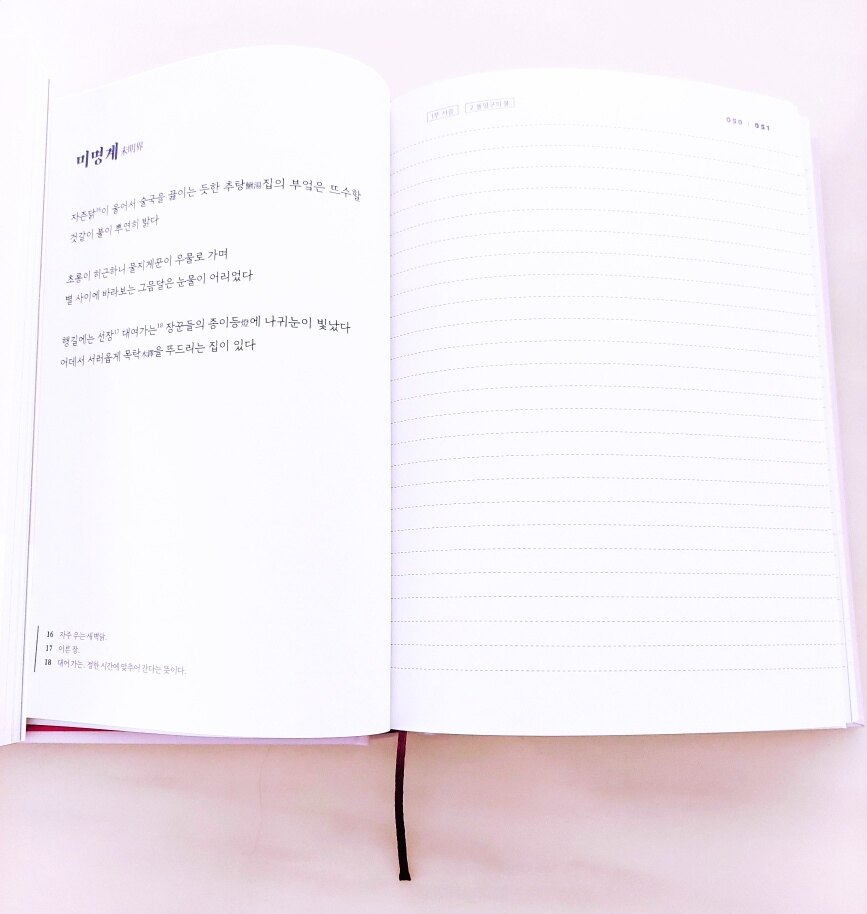 미명계 未明界
자즌닭16이 울어서 술국을 끓이는 듯한 추탕鰍湯집의 부엌은 뜨수할
것같이 불이 뿌연히 밝다
초롱이 히근하니 물지게꾼이 우물로 가며
별 사이에 바라보는 그믐달은 눈물이 어리었다
행길에는 선장17 대여가는18 장꾼들의 종이등燈에 나귀눈이 빛났다
어데서 서러웁게 목탁木鐸을 뚜드리는 집이 있다
16 자주 우는 새벽닭.
17 이른 장.
18 대어 가는. 정한 시간에 맞추어 간다는 뜻이다.
1부 사슴 2 돌덜구의 물
050 · 051